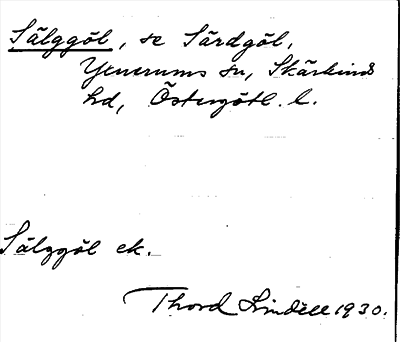 Sälggöl, se Särdgöl,
Yxnerums sn, Skärkinds
hd, Östergötl. l.
Sälggöl ek.
Thord Lindell 1930.